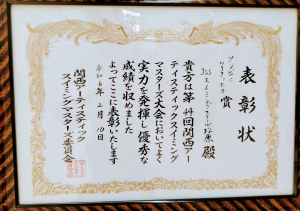 表彰状
賞
JSSスイミングスクール塚原 殿
貴方は第44回関西アー
ティスティックスイミング
マスターズ大会においてよく
実力を発揮し優秀な
成績を収めました
よってここに表彰いたします
令和6年2月10日
関西アーティスティック
スイミングマスターズ委員会